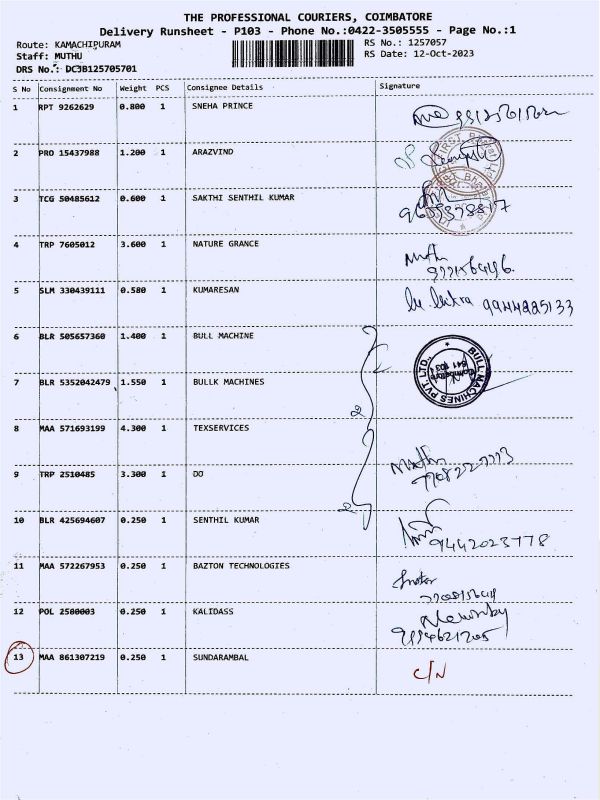 THE PROFESSIONAL COURIERS, COIMBATORE
Delivery Runsheet - P103 - Phone No.:0422-3505555 - Page No.:1
Route: KAMACHIPURAM RS No.: 1257057
Staff: MUTHU RS Date: 12-Oct-2023
DRS No.: DC3B125705701
S No Consignment No Weight PCS Consignee Details Signature
1 RPT 9262629 0.800 1 SNEHA PRINCE
2 PRO 15437988 1.200 1 ARAZVIND
3 TCG 50485612 0.600 1 SAKTHI SENTHIL KUMAR
4 TRP 7605012 3.600 1 NATURE GRANCE
5 SLM 330439111 0.580 1 KUMARESAN 9944225133
6 BLR 505657360 1.400 1 BULL MACHINE
BULL MACHINES PVT. LTD.,
Coimbatore
641 103
7 BLR 5352042479 1.550 1 BULLK MACHINES
8 MAA 571693199 4.300 1 TEXSERVICES
9 TRP 2510485 3.300 1 DO
10 BLR 425694607 0.250 1 SENTHIL KUMAR
9442023778
11 MAA 572267953 0.250 1 BAZTON TECHNOLOGIES
12 POL 2500003 0.250 1 KALIDASS
13 MAA 861307219 0.250 1 SUNDARAMBAL
C/N